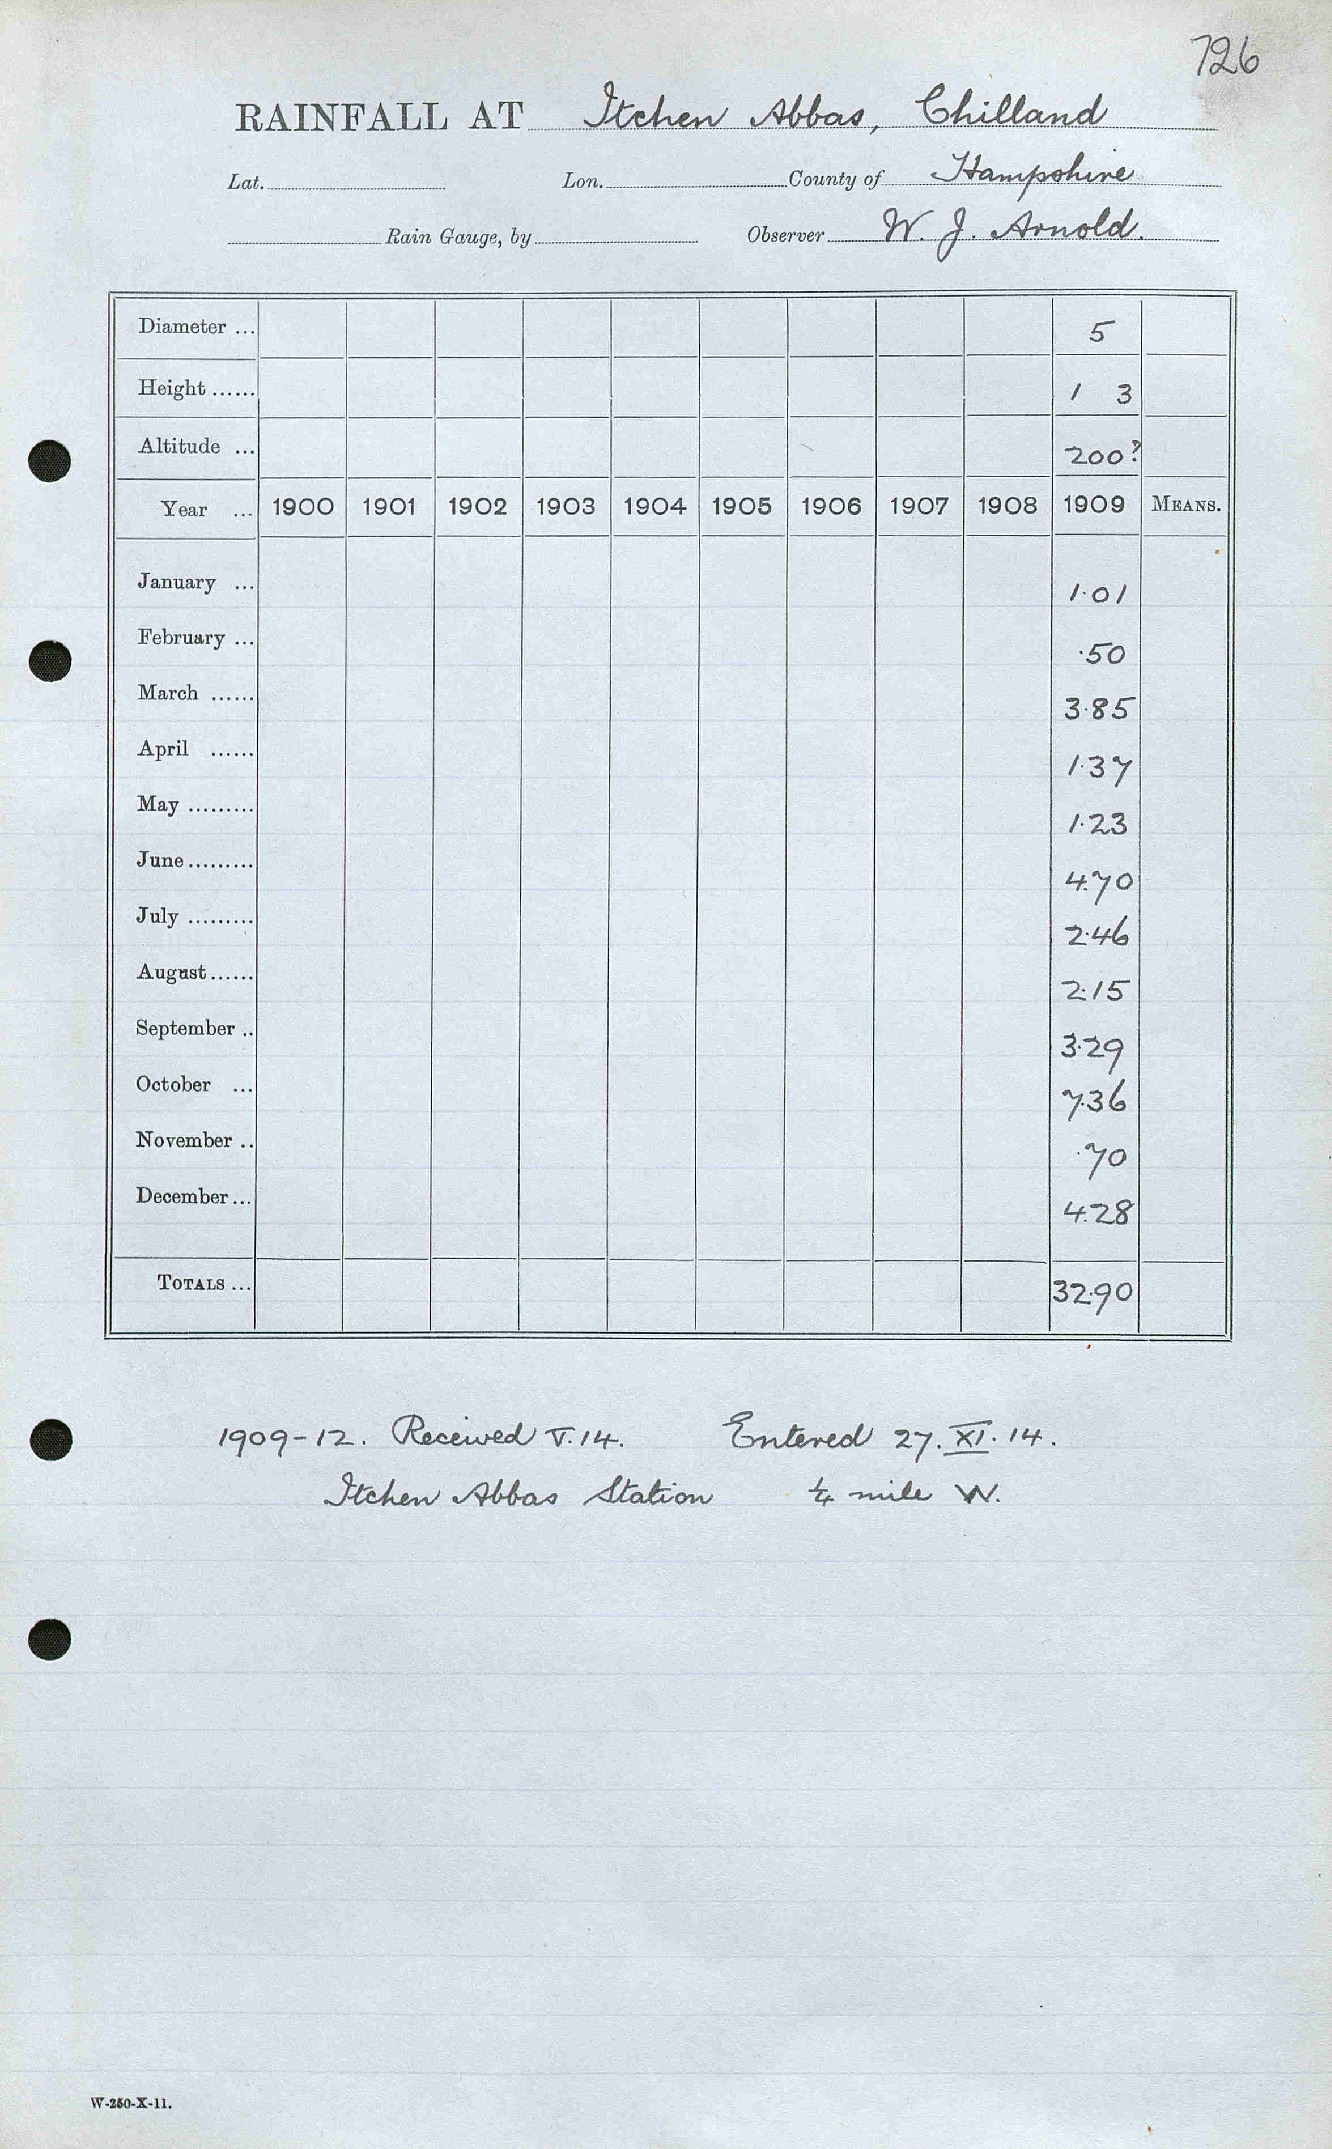 726
RAINFALL AT Itchen Abbas, Chilland
Lat. Lon. County of Hampshire
Rain Gauge, by Observer W. J. Arnold.
Diameter ... 5
Height ...... 1 3
Altitude ... 200?
Year ... 1900 1901 1902 1903 1904 1905 1906 1907 1908 1909 MEANS.
January ... 1.01
February ... .50
March ...... 3.85
April ...... 1.37
May ......... 1.23
June ......... 4.70
July ......... 2.46
August ...... 2.15
September .. 3.29
October ... 7.36
November .. .70
December ... 4.28
TOTALS ... 32.90
1909-12. Received V.14. Entered 27.XI.14.
Itchen Abbas Station ¼ mile W.
W-250-X-11.